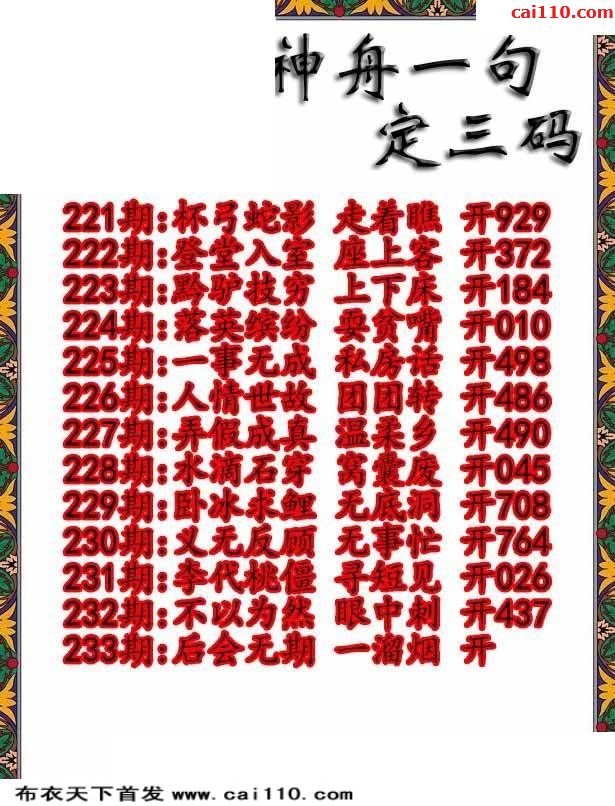 cai110.com
神舟一句
定三码
221期:杯弓蛇影 走着瞧 开929
222期:登堂入室 座上客 开372
223期:黔驴技穷 上下床 开184
224期:落英缤纷 耍贫嘴 开010
225期:一事无成 私房话 开498
226期:人情世故 团团转 开486
227期:弄假成真 温柔乡 开490
228期:水滴石穿 窝囊废 开045
229期:卧冰求鲤 无底洞 开708
230期:义无反顾 无事忙 开764
231期:李代桃僵 寻短见 开026
232期:不以为然 眼中刺 开437
233期:后会无期 一溜烟 开
布衣天下首发 www.cai110.com